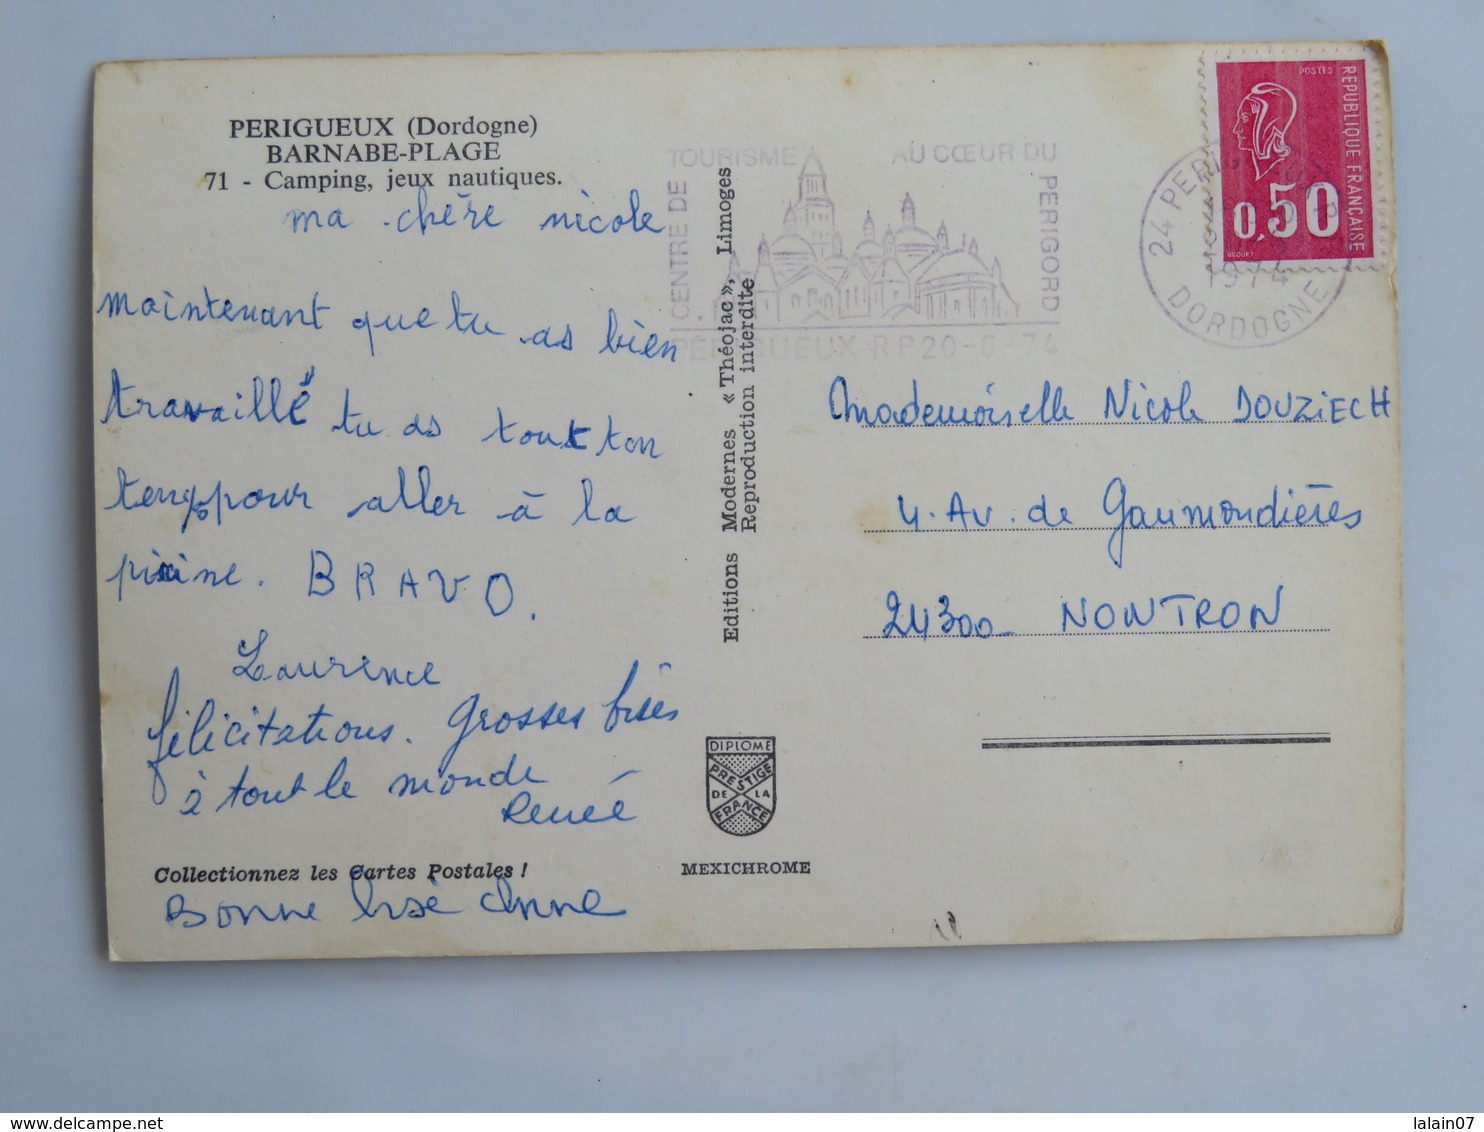 PERIGUEUX (Dordogne)
BARNABE-PLAGE
71 - Camping, jeux nautiques.
ma chère nicole
maintenant que tu as bien
travaillé tu as tout ton
temps pour aller à la
piscine. BRAVO.
Laurence
félicitations. Grosses bises
à tout le monde
Renée
Collectionnez les Cartes Postales !
Bonne bise Anne
Editions Modernes « Théojac », Limoges
Reproduction interdite
DIPLOME
PRESTIGE
DE LA
FRANCE
MEXICHROME
CENTRE DE
TOURISME AU CŒUR DU
PERIGORD
PERIGUEUX R.P. 20-6-74
24 PERIGUEUX R.P.
1974
DORDOGNE
POSTES
REPUBLIQUE FRANÇAISE
0,50
BEQUET
Mademoiselle Nicole DOUZIECH
4. Av. de Gaumondières
24300 - NONTRON
delcampe.net
lalain07